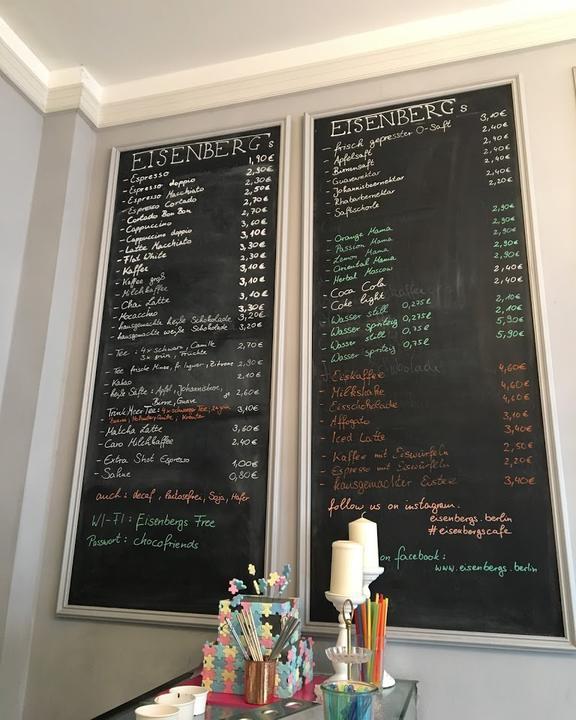 EISENBERGs
- Espresso 1,90€
- Espresso doppio 2,90€
- Espresso Macchiato 2,30€
- Espresso Cortado 2,50€
- Cortado Bon Bon 2,70€
- Cappuccino 2,70€
- Cappuccino doppio 3,60€
- Latte Macchiato 3,10€
- Flat White 3,30€
- Kaffee 2,30€
- Kaffee groß 3,10€
- Milchkaffee 3,10€
- Chai Latte
- Mocaccino 3,30€
- hausgemachte heiße Schokolade 3,20€
- hausgemachte weiße Schokolade 3,20€
- Tee : 4x schwarz, Camille 2,70€
3x grün, Früchte
- Tee frische Minze, fr. Ingwer, Zitrone 2,90€
- Kakao 2,10€
- heiße Säfte : Apfel, Johannisbeer, 2,60€
Birne, Guave
- TrinkMeer Tee : 4x schwarzer Tee, 3,10€
Kräuter
- Matcha Latte 3,60€
- Caro Milchkaffee 2,40€
- Extra Shot Espresso 1,00€
- Sahne 0,80€
auch : decaf, lactosefrei, Soja, Hafer
WI-FI : Eisenbergs Free
Passwort : chocofriends
EISENBERGs
- frisch gepresster O-Saft 3,10€
- Apfelsaft 2,40€
- Birnensaft 2,40€
- Guavenektar 2,40€
- Johannisbeernektar 2,40€
- Rhabarbernektar 2,40€
- Saftschorle 2,20€
- Orange Mama 2,90€
- Passion Mama 2,90€
- Lemon Mama 2,90€
- Oriental Mama 2,90€
- Herbal Moscow 2,90€
- Coca Cola 2,40€
- Coke light 2,40€
- Wasser still 0,25l 2,10€
- Wasser spritzig 0,25l 2,10€
- Wasser still 0,75l 5,90€
- Wasser spritzig 0,75l 5,90€
- Eiskaffee 4,60€
- Milkshake 4,60€
- Eisschokolade 4,60€
- Affogato 3,10€
- Iced Latte 3,40€
- Kaffee mit Eiswürfeln 2,50€
- Espresso mit Eiswürfeln 2,20€
- hausgemachter Eistee 3,40€
follow us on instagram:
eisenbergs.berlin
#eisenbergscafe
on facebook:
www.eisenbergs.berlin